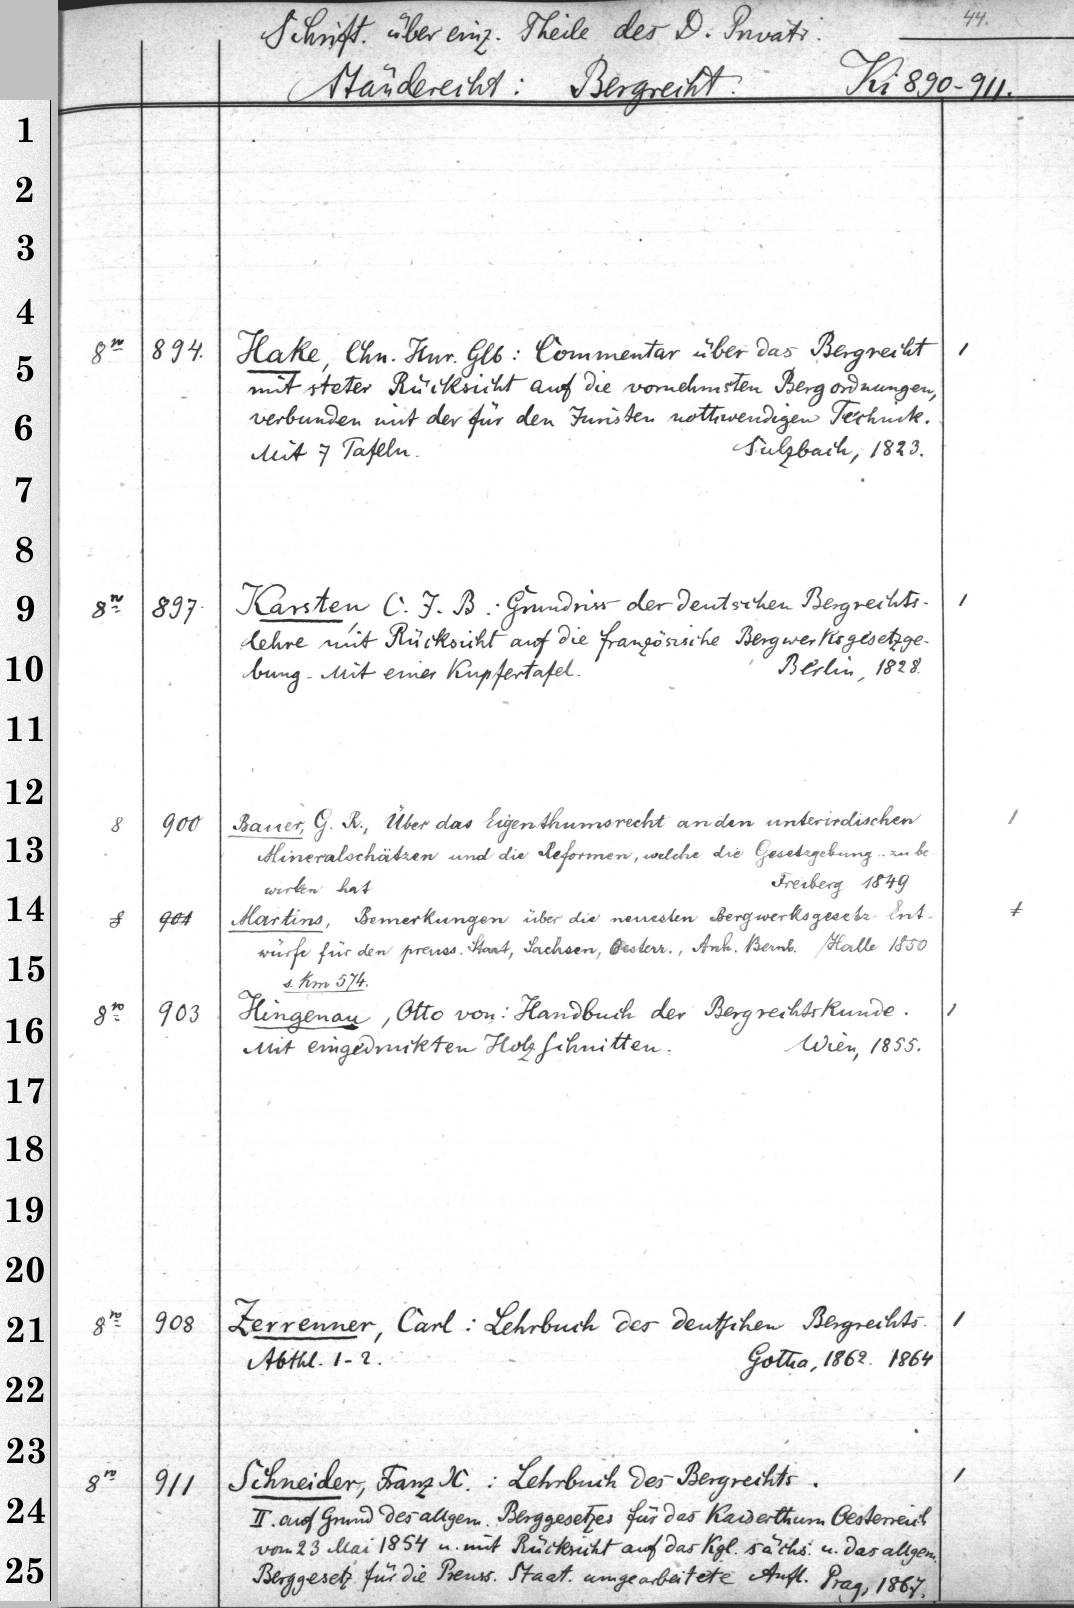 44.
Schrift. über einz. Theile des D. Privatr.
Ständerecht: Bergrecht. Ki 890-911.
1
2
3
4
8º 894. Hake, Chn. Hnr. Glb: Commentar über das Bergrecht 1
5
mit steter Rücksicht auf die vornehmsten Bergordnungen,
6
verbunden mit der für den Juristen nothwendigen Technik.
Mit 7 Tafeln. Sulzbach, 1823.
7
8
9
8º 897. Karsten C. J. B.: Grundriss der deutschen Bergrechts- 1
lehre mit Rücksicht auf die französische Bergwerksgesetzge-
10
bung. Mit einer Kupfertafel. Berlin, 1828.
11
12
8 900 Bauer, G. R., Über das Eigenthumsrecht an den unterirdischen 1
13
Mineralschätzen und die Reformen, welche die Gesetzgebung .. zu be-
wirken hat Freiberg 1849
14
8 901 Martins, Bemerkungen über die neuesten Bergwerksgesetz Ent- 1
würfe für den preuss. Staat, Sachsen, Oesterr., Anh. Bernb. Halle 1850
15
s. Km 574.
8º 903 Hingenau, Otto von: Handbuch der Bergrechtskunde. 1
16
Mit eingedruckten Holzschnitten. Wien, 1855.
17
18
19
20
21
8º 908 Zerrenner, Carl: Lehrbuch des deutschen Bergrechts. 1
Abthl. 1-2. Gotha, 1862. 1864
22
23
8º 911 Schneider, Franz X.: Lehrbuch des Bergrechts. 1
24
II. auf Grund des allgem. Berggesetzes für das Kaiserthum Oesterreich
vom 23 Mai 1854 u. mit Rücksicht auf das Kgl. sächs. u. das allgem.
25
Berggesetz für die Preuss. Staat. umgearbeitete Aufl. Prag, 1867.